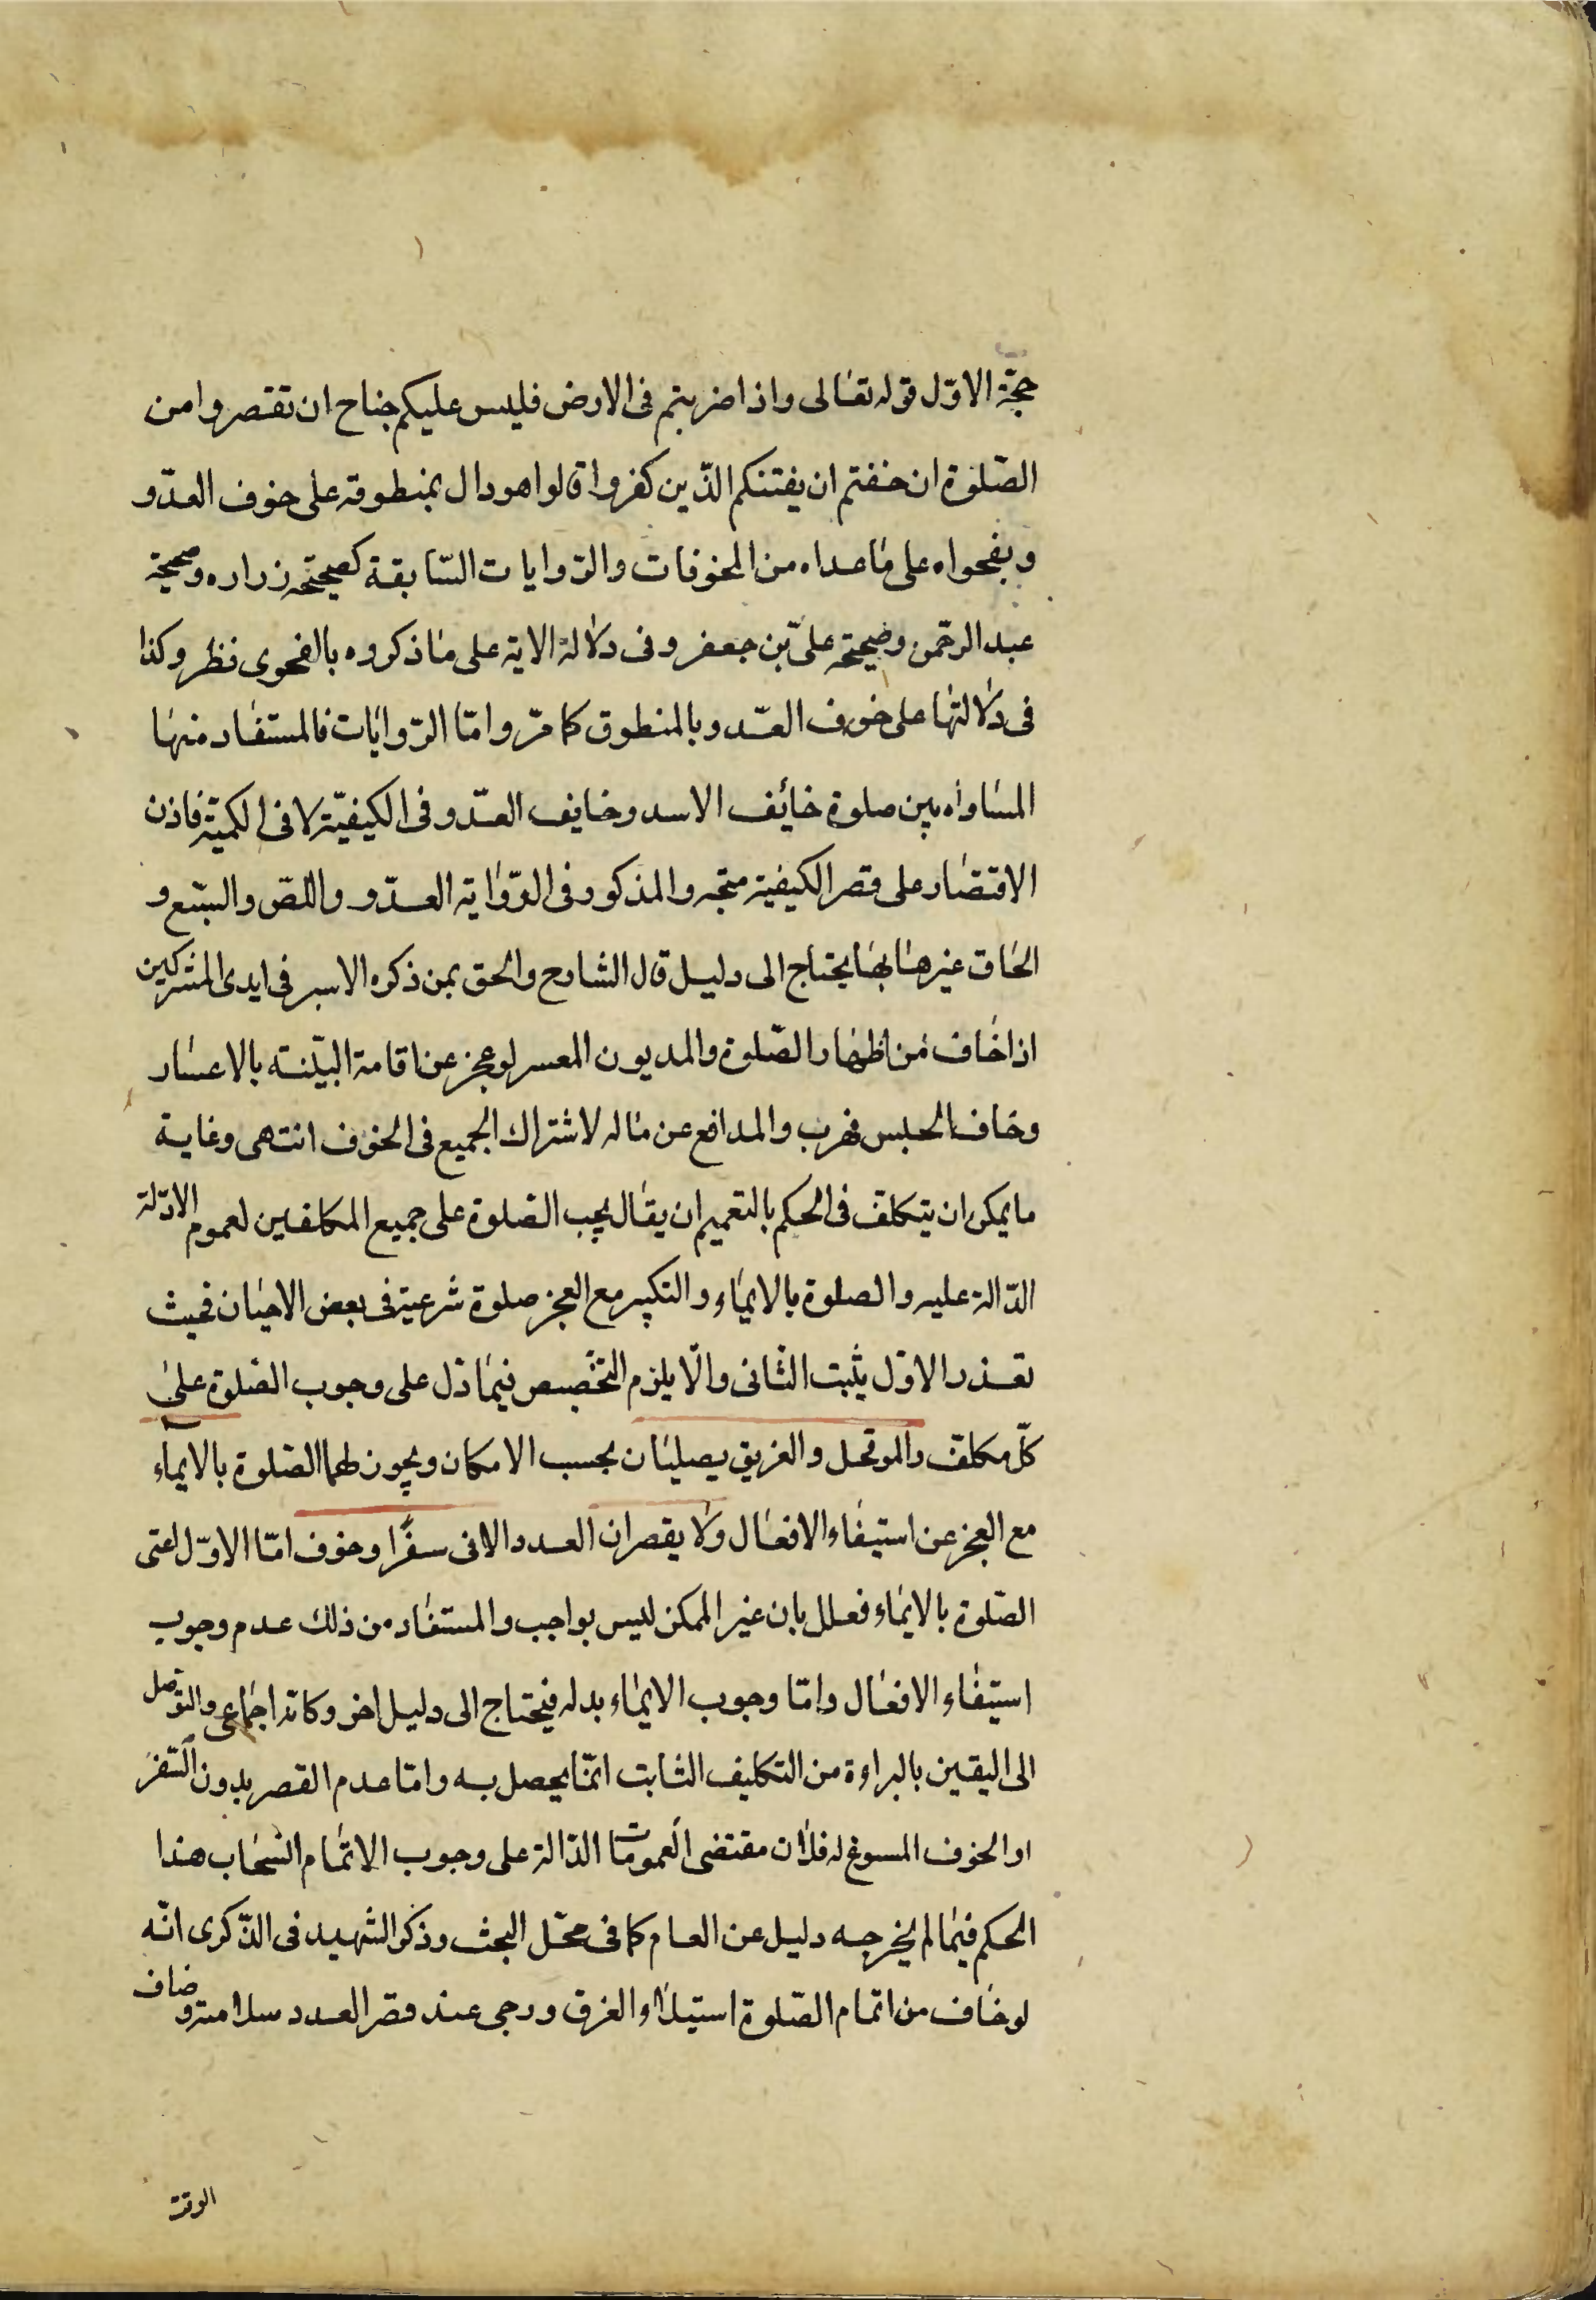 حجّة الاوّل قوله تعالى واذا ضربتم فى الارض فليس عليكم جناح ان تقصروا من
الصّلوة ان خفتم ان يفتنكم الذّين كفروا قالوا هو دال بمنطوقه على خوف العدّو
وبفحواه على ما عداه من المخوفات والرّوايات السّابقة كصحيحة زراره وصحيحة
عبد الرحمن وصحيحة علىّ بن جعفر وفى دلالة الاية على ما ذكروه بالفحوى نظر وكذا
فى دلالتها على خوف العدّو بالمنطوق كما مرّ وامّا الرّوايات فالمستفاد منها
المساواه بين صلوة خائف الاسد وخايف العدّو فى الكيفيّة لا فى الكميّة فاذن
الاقتصار على قصر الكيفية متجه والمذكور فى الرّواية العدّو واللصّ والسّبع و
الحاق غيرها بها يحتاج الى دليل قال الشارح والحق بمن ذكره الاسير فى ايدى المشركين
اذا خاف من اظهار الصّلوة والمديون المعسر لو عجز عن اقامة البيّنه بالاعسار
وخاف الحبس فهرب والمدافع عن ماله لاشتراك الجميع فى الخوف انتهى وغاية
ما يمكن ان يتكلف فى الحكم بالتعميم ان يقال يجب الصّلوة على جميع المكلفين لعموم الادّلة
الدّالة عليه والصلوة بالايماء والتكبير مع العجز صلوة شرعية فى بعض الاحيان فحيث
تعذر الاوّل يثبت الثانى والّا يلزم التخصيص فيما دلّ على وجوب الصّلوة على
كلّ مكلف والموتحل والغريق يصليان بحسب الامكان ويجوز لهما الصّلوة بالايماء
مع العجز عن استيفاء الافعال ولا يقصران العدد الا فى سفرا وخوف امّا الاوّل اعنى
الصّلوة بالايماء فعلل بان غير الممكن ليس بواجب والمستفاد من ذلك عدم وجوب
استيفاء الافعال وامّا وجوب الايماء بدله فيحتاج الى دليل اخر وكانّه اجماعى والتوصل
الى اليقين بالبراءة من التكليف الثابت انمّا يحصل به وامّا عدم القصر بدون السّفر
او الخوف المسوغ له فلان مقتضى العمومات الدّالة على وجوب الاتمام انسحاب هذا
الحكم فيما لم يخرجه دليل عن العام كما فى محّل البحث وذكر الشهيد فى الذّكرى انّه
لو خاف من اتمام الصّلوة استيلاء الغرق ورجى عند قصر العدد سلامته وضاف
الوقت